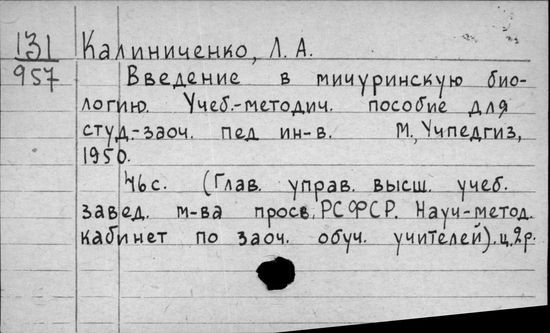 131 Калиниченко, Л. А.
957 Введение в мичуринскую био-
логию. Учеб.-методич. пособие для
студ.-заоч. пед ин-в. М., Учпедгиз,
1950.
46 с. (Глав. управ. высш. учеб.
завед. м-ва просв. РСФСР. Науч-метод.
кабинет по заоч. обуч. учителей). ц. 2 р.